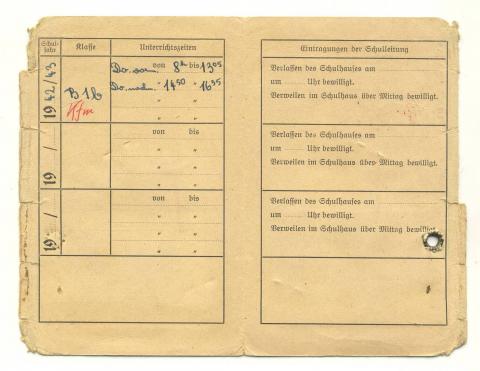 Schul-
jahr
Klasse
Unterrichtszeiten
1942/43
B1b
Kfm
Do. vorm. von 8h bis 13 05
Do. nachm. " 14 50 " 16 35
" "
" "
19 /
von bis
" "
" "
19 /
von bis
" "
" "
Eintragungen der Schulleitung
Verlassen des Schulhauses am
um ...... Uhr bewilligt.
Verweilen im Schulhaus über Mittag bewilligt.
Verlassen des Schulhauses am
um ...... Uhr bewilligt.
Verweilen im Schulhaus über Mittag bewilligt.
Verlassen des Schulhauses am
um ...... Uhr bewilligt.
Verweilen im Schulhaus über Mittag bewilligt.